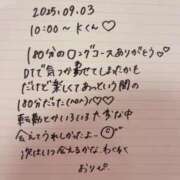 2025.09.03
10:00〜 Kくん♡
180分のロングコースありがとう♡
DTで気づか勤せてしまったかも
だけど楽しくてあっという間の
180分だった(^o^)♡♡
転勤とかいろいろ大変な中
会えてうれしかったよー☺
次はいつ会えるかな わくわく
おりん